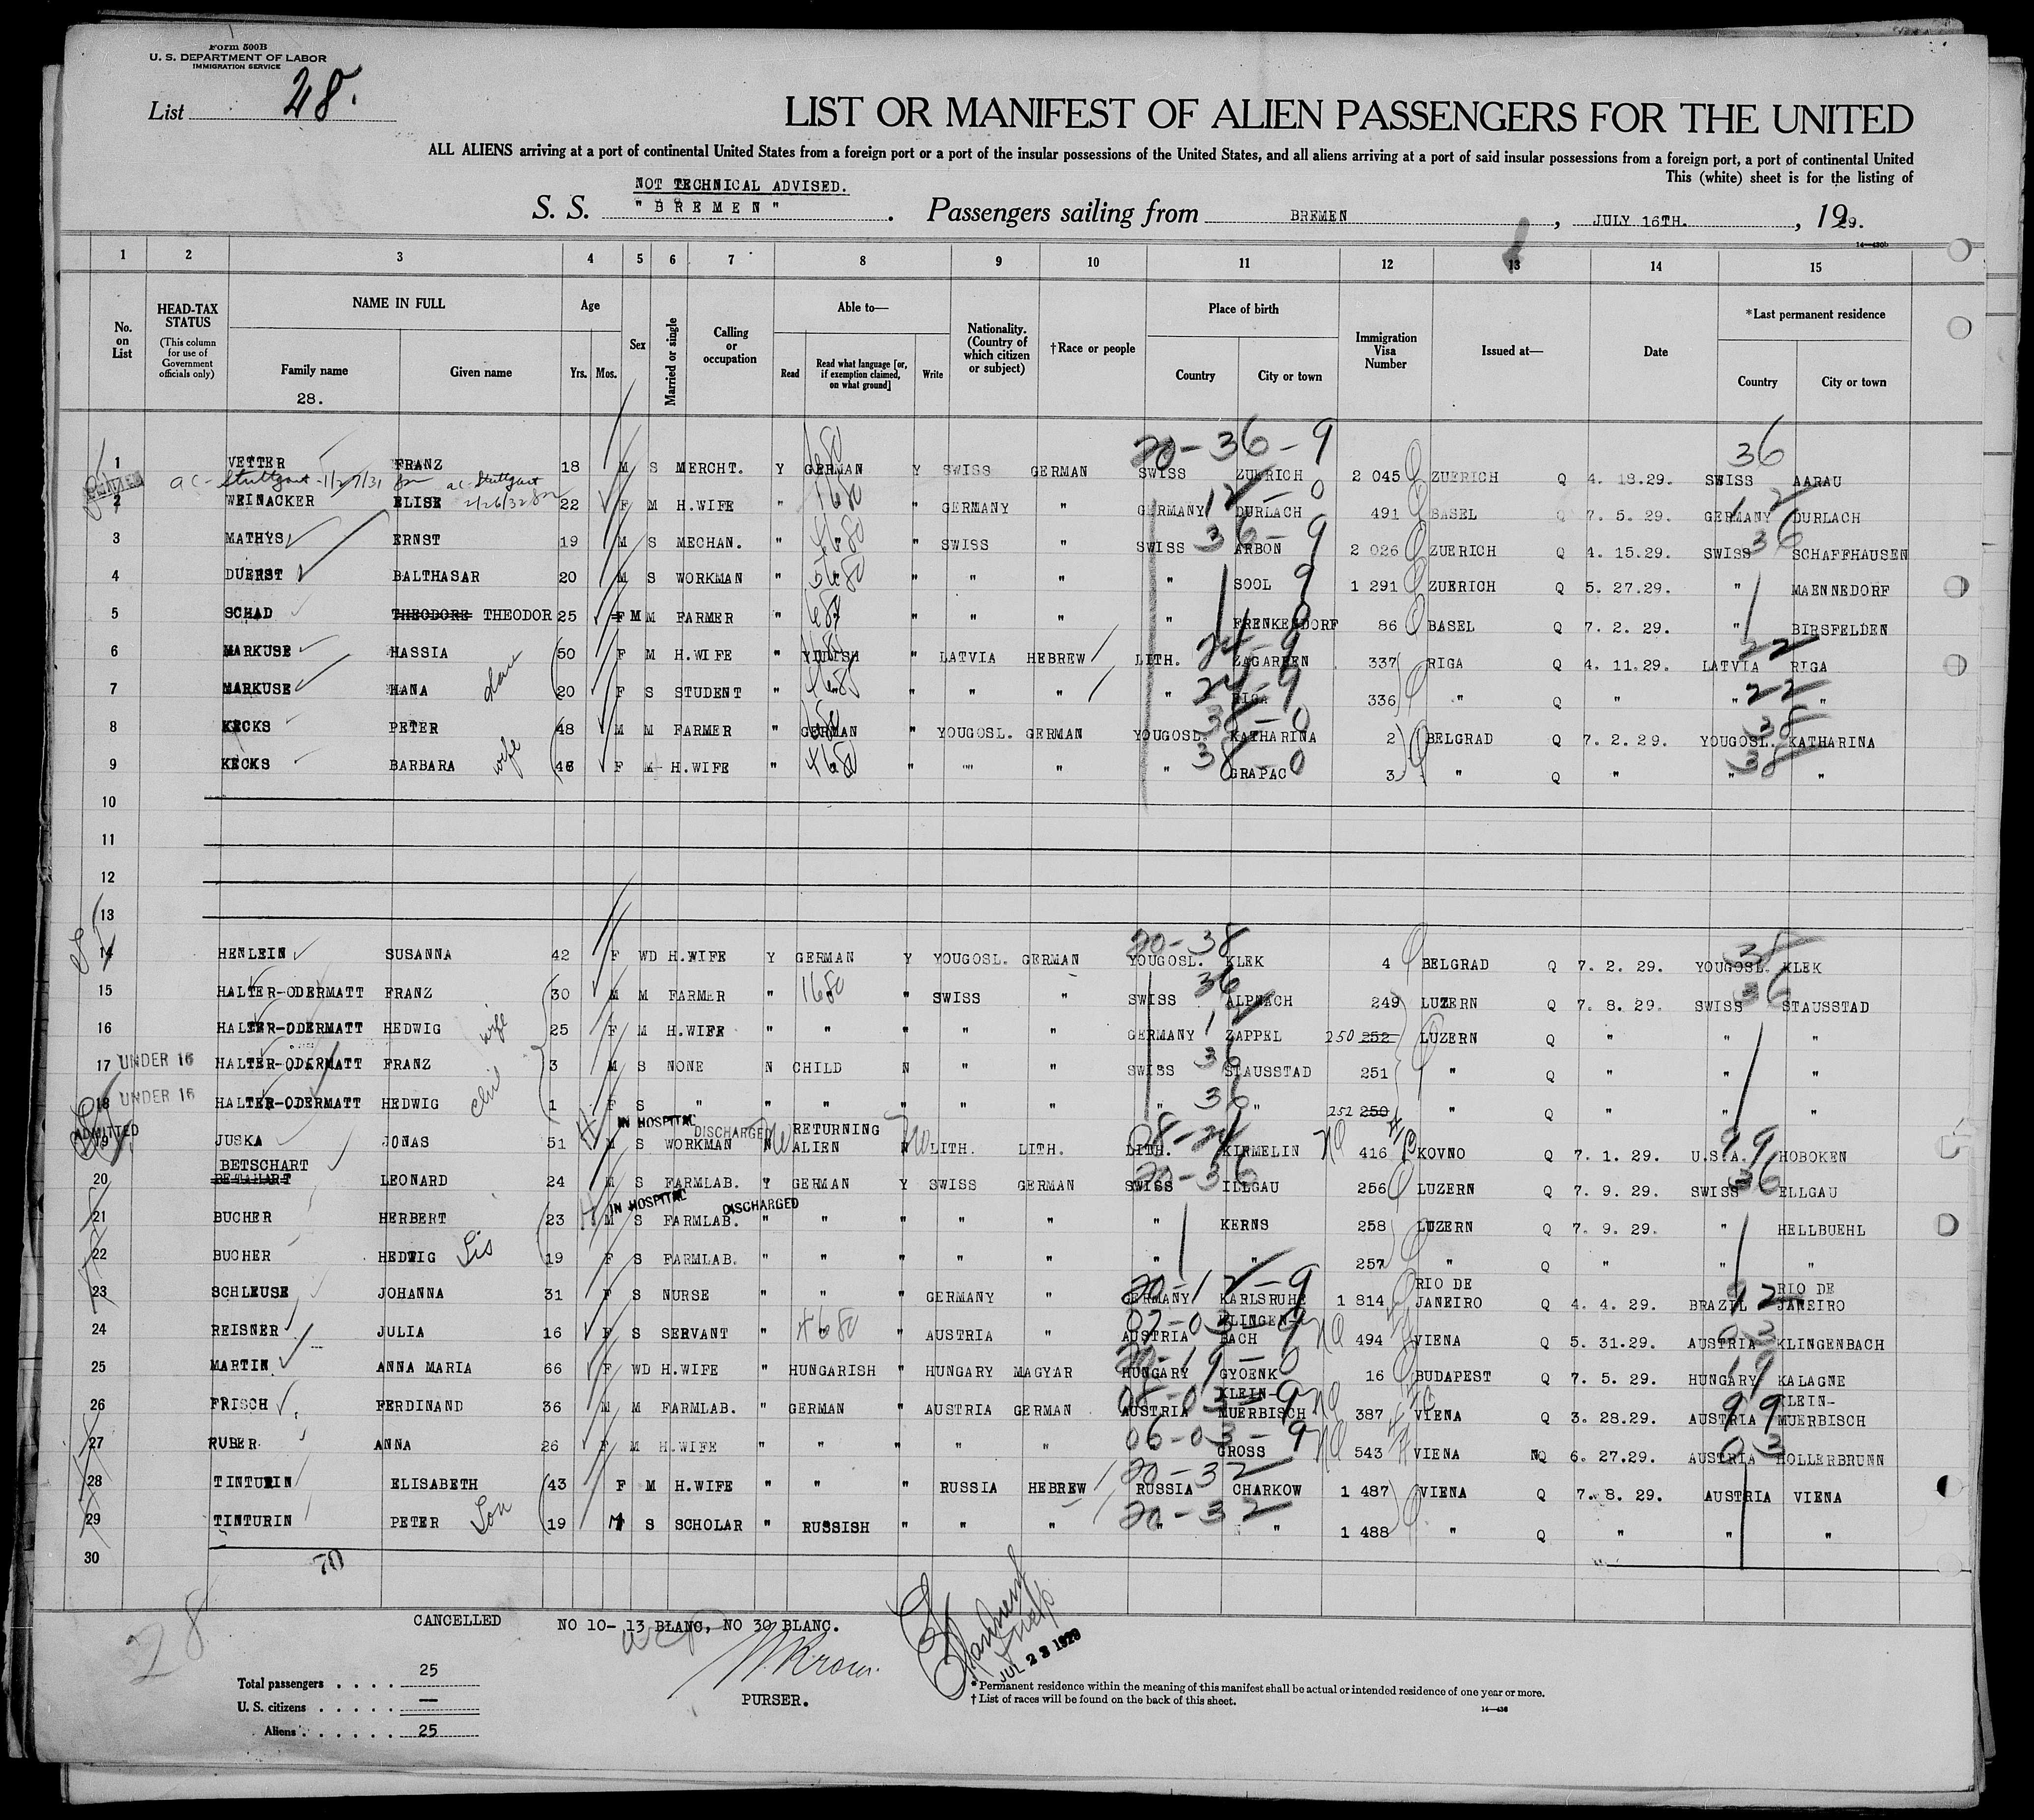 Form 500B
U. S. DEPARTMENT OF LABOR
IMMIGRATION SERVICE
List 28.
LIST OR MANIFEST OF ALIEN PASSENGERS FOR THE UNITED
ALL ALIENS arriving at a port of continental United States from a foreign port or a port of the insular possessions of the United States, and all aliens arriving at a port of said insular possessions from a foreign port, a port of continental United
This (white) sheet is for the listing of
NOT TECHNICAL ADVISED.
S. S. "BREMEN". Passengers sailing from BREMEN, JULY 16TH., 1929.
14—430b
1 2 3 4 5 6 7 8 9 10 11 12 13 14 15
No. on List
HEAD-TAX STATUS (This column for use of Government officials only)
NAME IN FULL
Family name
Given name
28.
Age
Yrs. Mos.
Sex
Married or single
Calling or occupation
Able to—
Read
Read what language [or, if exemption claimed, on what ground]
Write
Nationality. (Country of which citizen or subject)
†Race or people
Place of birth
Country
City or town
Immigration Visa Number
Issued at—
Date
*Last permanent residence
Country
City or town
20-36-9 36
1 VETTER FRANZ 18 M S MERCHT. Y GERMAN Y SWISS GERMAN SWISS ZUERICH 2 045 ZUERICH Q 4. 18.29. SWISS AARAU
ac-Stuttgart-1/27/31 ac Stuttgart 2/26/32
2 WEINACKER ELISE 22 F M H.WIFE " " GERMANY " GERMANY DURLACH 491 BASEL Q 7. 5. 29. GERMANY DURLACH
3 MATHYS ERNST 19 M S MECHAN. " " " SWISS " SWISS ARBON 2 026 ZUERICH Q 4. 15.29. SWISS SCHAFFHAUSEN
4 DUERST BALTHASAR 20 M S WORKMAN " " " " " " SOOL 1 291 ZUERICH Q 5. 27.29. " MAENNEDORF
5 SCHAD THEODORE THEODOR 25 F M M FARMER " " " " " " FRENKENDORF 86 BASEL Q 7. 2. 29. " BIRSFELDEN
6 MARKUSE HASSIA 50 F M H.WIFE " YIDDISH " LATVIA HEBREW LITH. ZAGARREN 337 RIGA Q 4. 11.29. LATVIA RIGA
7 MARKUSE HANA dau 20 F S STUDENT " " " " " " RIGA 336 " Q " " "
8 KECKS PETER 48 M M FARMER " GERMAN " YOUGOSL. GERMAN YOUGOSL. KATHARINA 2 BELGRAD Q 7. 2. 29. YOUGOSL. KATHARINA
9 KECKS BARBARA wife 46 F M H.WIFE " " " " " GRAPAC 3 " Q " " "
10
11
12
13
20-38 38
14 HENLEIN SUSANNA 42 F WD H.WIFE Y GERMAN Y YOUGOSL. GERMAN YOUGOSL. KLEK 4 BELGRAD Q 7. 2. 29. YOUGOSL. KLEK
15 HALTER-ODERMATT FRANZ 30 M M FARMER " " SWISS " SWISS ALPNACH 249 LUZERN Q 7. 8. 29. SWISS STAUSSTAD
16 HALTER-ODERMATT HEDWIG wife 25 F M H.WIFE " " " " " GERMANY ZAPPEL 250 252 LUZERN Q " " "
17 UNDER 16 HALTER-ODERMATT FRANZ 3 M S NONE N CHILD N " " SWISS STAUSSTAD 251 " Q " " "
18 UNDER 16 HALTER-ODERMATT HEDWIG 1 F S " " " " " " " " 252 250 " Q " " "
ADMITTED IN HOSPITAL DISCHARGED
19 JUSKA JONAS 51 M S WORKMAN N RETURNING ALIEN N LITH. LITH. LITH. KIRMELIN 416 KOVNO Q 7. 1. 29. U.S.A. HOBOKEN
20 BETSCHART LEONARD 24 M S FARMLAB. Y GERMAN Y SWISS GERMAN SWISS ILLGAU 256 LUZERN Q 7. 9. 29. SWISS ELLGAU
IN HOSPITAL DISCHARGED
21 BUCHER HERBERT 23 M S FARMLAB. " " " " " " KERNS 258 LUZERN Q 7. 9. 29. " HELLBUEHL
22 BUCHER HEDWIG Sis 19 F S FARMLAB. " " " " " " " 257 " Q " " "
23 SCHLEUSE JOHANNA 31 F S NURSE " " " GERMANY " GERMANY KARLSRUHE 1 814 RIO DE JANEIRO Q 4. 4. 29. BRAZIL RIO DE JANEIRO
24 REISNER JULIA 16 F S SERVANT " " " AUSTRIA " AUSTRIA KLINGEN-BACH 494 VIENA Q 5. 31.29. AUSTRIA KLINGENBACH
25 MARTIN ANNA MARIA 66 F WD H.WIFE " HUNGARISH " HUNGARY MAGYAR HUNGARY GYOENK 16 BUDAPEST Q 7. 5. 29. HUNGARY KALAGNE
26 FRISCH FERDINAND 36 M M FARMLAB. " GERMAN " AUSTRIA GERMAN AUSTRIA KLEIN-MUERBISCH 387 VIENA Q 3. 28.29. AUSTRIA KLEIN-MUERBISCH
27 RUBER ANNA 26 F M H.WIFE " " " " " GROSS 543 VIENA NQ 6. 27.29. AUSTRIA HOLLERBRUNN
28 TINTURIN ELISABETH 43 F M H.WIFE " " " RUSSIA HEBREW RUSSIA CHARKOW 1 487 VIENA Q 7. 8. 29. AUSTRIA VIENA
29 TINTURIN PETER Son 19 M S SCHOLAR " RUSSISH " " " " " 1 488 " Q " " "
30
70
28
CANCELLED NO 10-13 BLANC, NO 30 BLANC.
PURSER.
JUL 23 1929
Total passengers . . . . 25
U. S. citizens . . . . . —
Aliens . . . . . . 25
* Permanent residence within the meaning of this manifest shall be actual or intended residence of one year or more.
† List of races will be found on the back of this sheet.
14—430